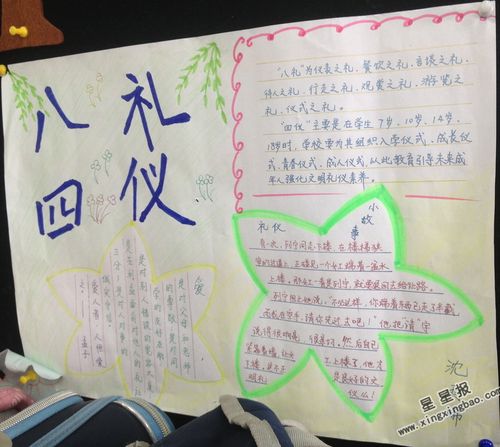 八礼
四仪
“八礼”为仪表之礼、餐饮之礼、言谈之礼、
待人之礼、行走之礼、观赏之礼、游览之
礼、仪式之礼。
“四仪”主要是在学生7岁、10岁、14岁、
18岁时，学校要为其组织入学仪式、成长仪
式、青春仪式、成人仪式，从此教育引导未来成
年人强化文明礼仪素养。
礼仪
小故事
有一次，列宁同志下楼，在楼梯狭
窄的过道上，正碰见一个女工端着一盆水
上楼。那女工一看是列宁，就要退回去给让路。
列宁阻止她说：“不必这样，你端着东西已走了半截，
而我在空手，请你先过去吧！”他把“请”字
说得很响亮，很亲切。然后自己
紧靠着墙，让女
上楼了，他才
下楼，是不
是良好的文
明礼
仪么！
爱
是对父母和老师
是对别人错误的宽容
孟子
沈
星星报
www.xingxingbao.com